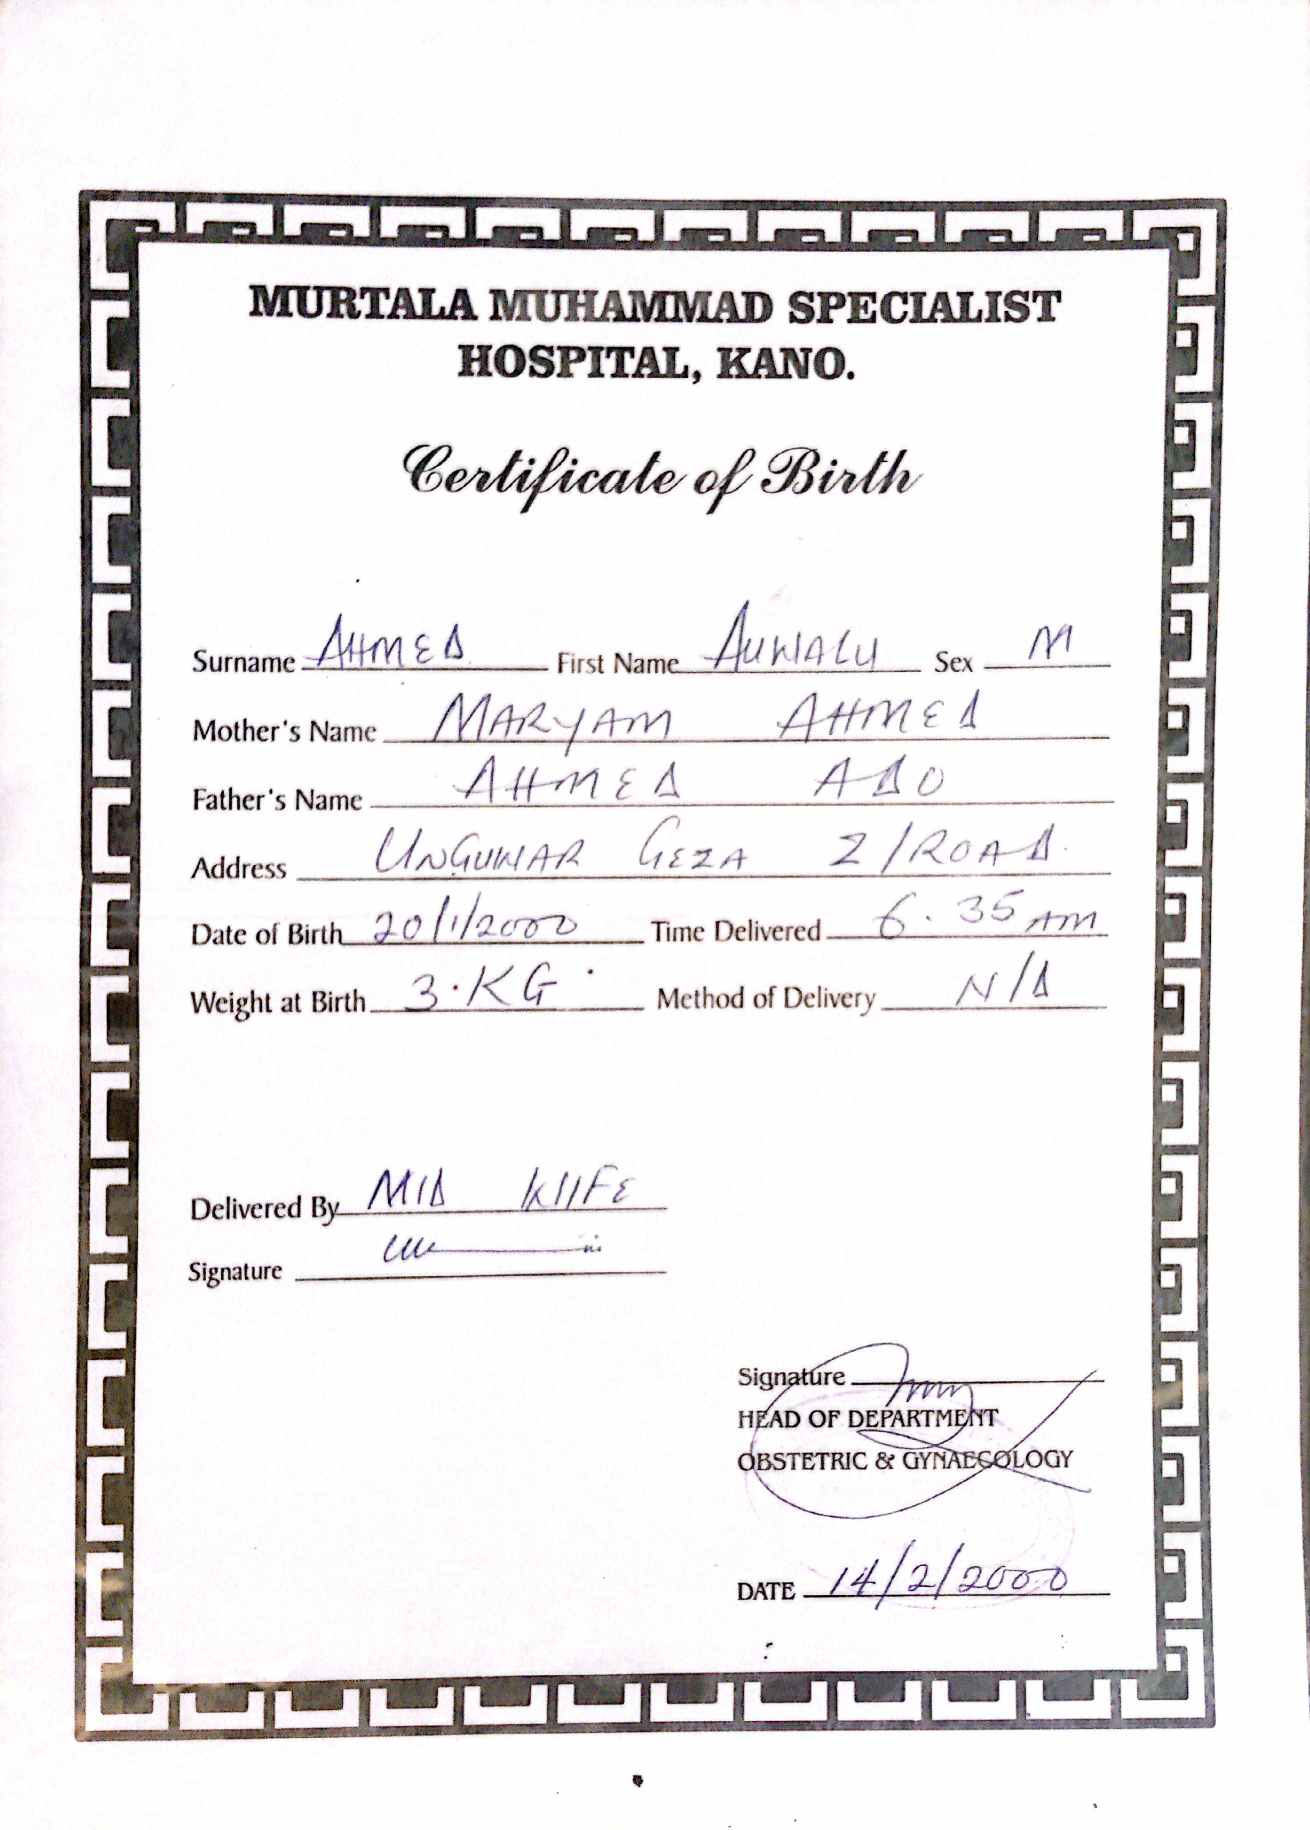 MURTALA MUHAMMAD SPECIALIST
HOSPITAL, KANO.
Certificate of Birth
Surname AHMED First Name AUWALU Sex M
Mother's Name MARYAM AHMED
Father's Name AHMED ADO
Address UNGUWAR GEZA Z/ROAD.
Date of Birth 20/1/2000 Time Delivered 6.35 AM
Weight at Birth 3.KG Method of Delivery N/D
Delivered By MID WIFE
Signature
Signature
HEAD OF DEPARTMENT
OBSTETRIC & GYNAECOLOGY
DATE 14/2/2000